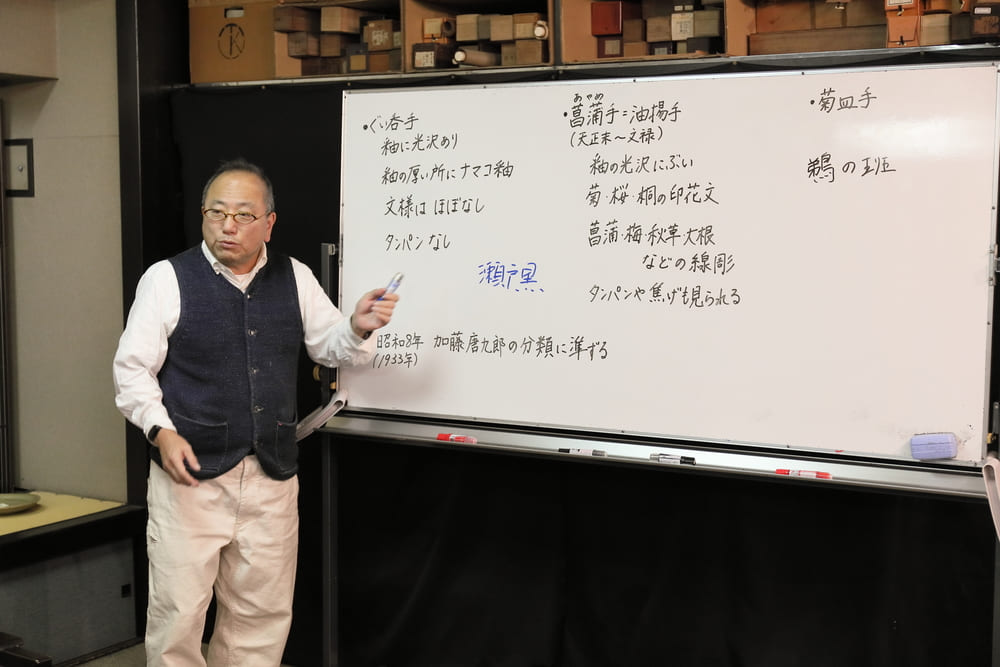 ・ぐい呑手
釉に光沢あり
釉の厚い所にナマコ釉
文様は ほぼなし
タンパン なし
瀬戸黒
昭和8年 加藤唐九郎の分類に準ずる
(1933年)
あやめ
・菖蒲手=油揚手
(天正末～文禄)
釉の光沢にぶい
菊・桜・桐の印花文
菖蒲・梅・秋草・大根
などの線彫
タンパンや焦げも見られる
・菊皿手
の班